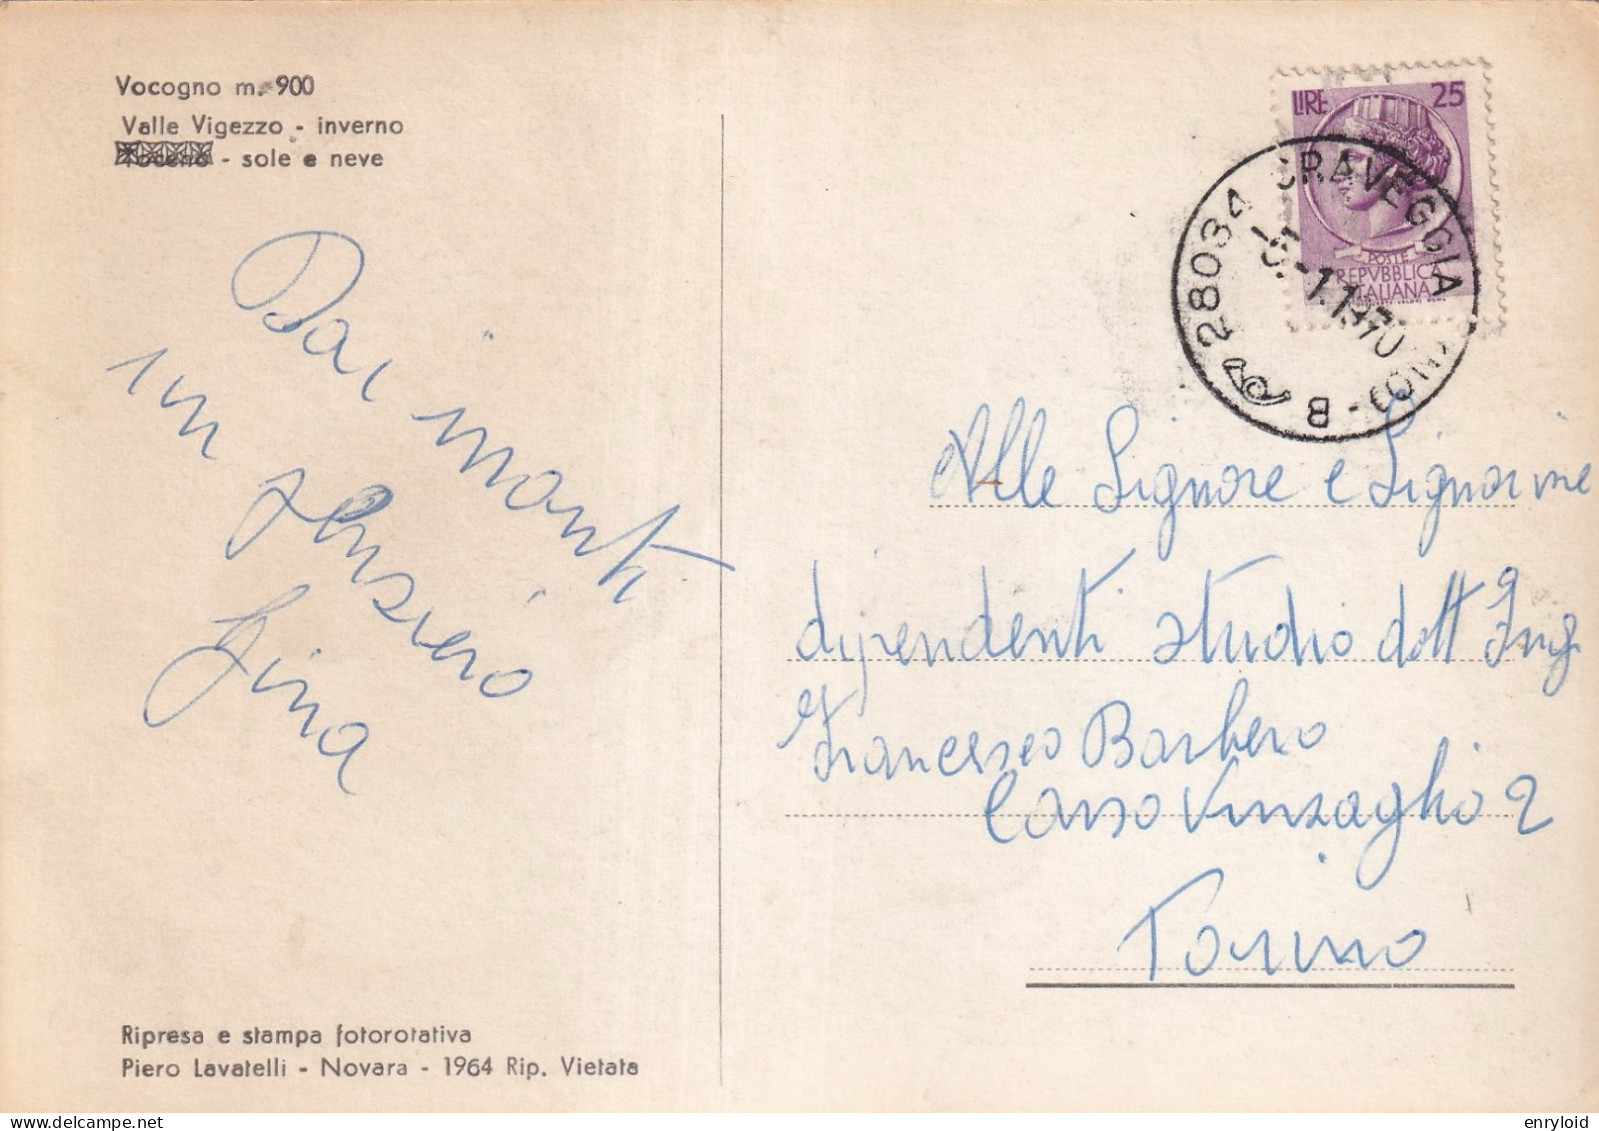 Vocogno m. 900
Valle Vigezzo - inverno
Toceno - sole e neve
Dai monti
un pensiero
Gina
LIRE 25
POSTE
REPVBBLICA
ITALIANA
28034 CRAVEGGIA
-1.1970
B
Alle Signore e Signorine
dipendenti studio dott Ing
Francesco Barbero
Corso Vinzaglio 2
Torino
Ripresa e stampa fotorotativa
Piero Lavatelli - Novara - 1964 Rip. Vietata
enryloid